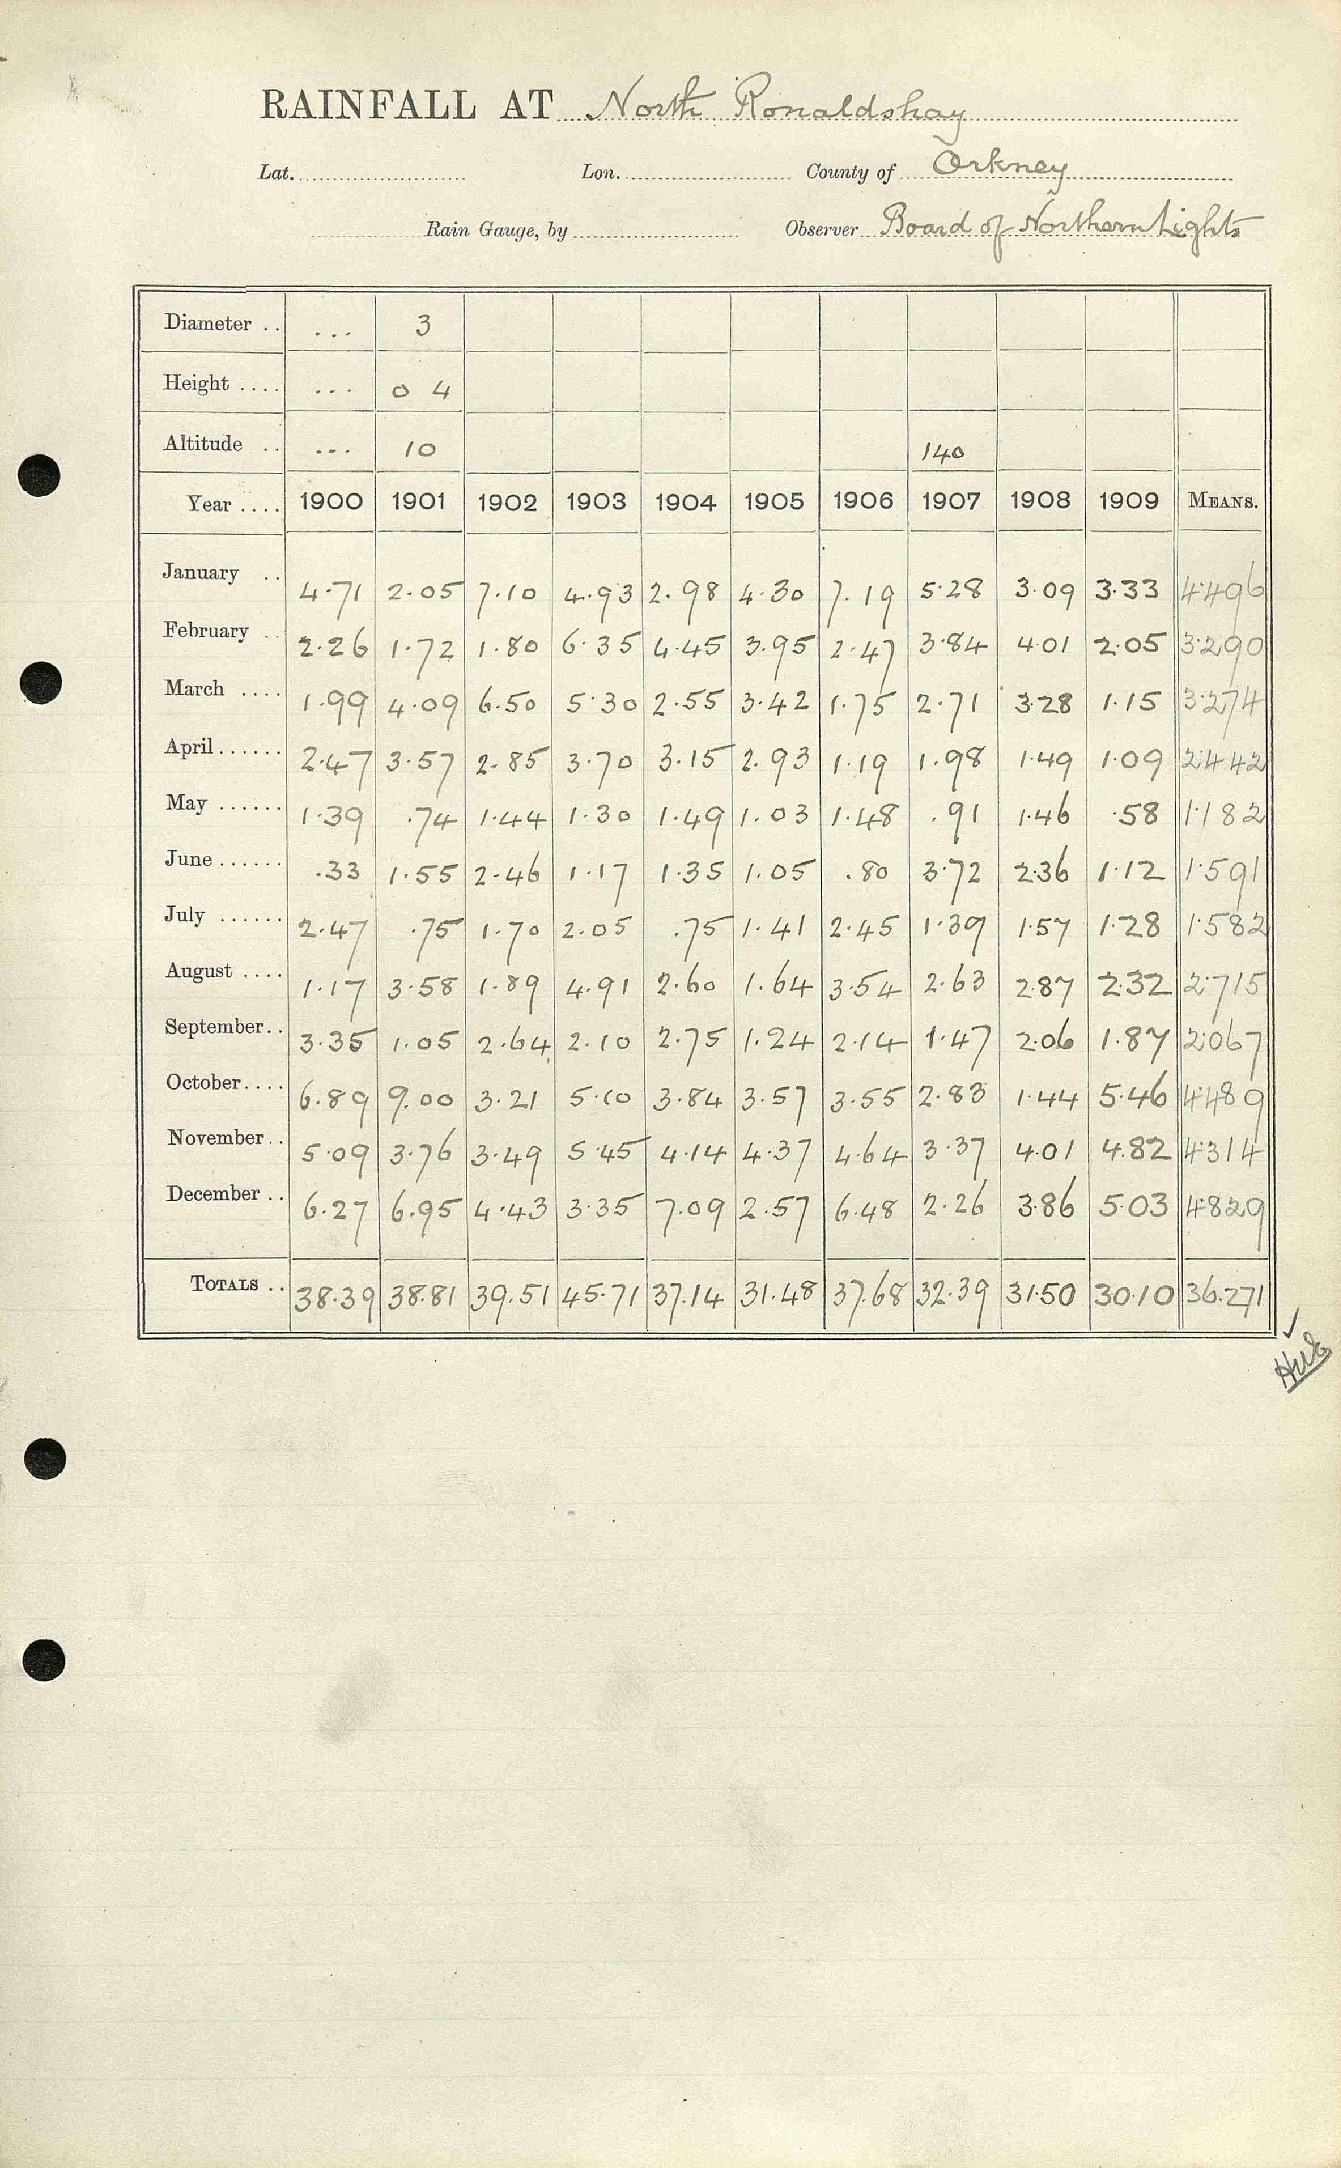 RAINFALL AT North Ronaldshay
Lat. Lon. County of Orkney
Rain Gauge, by Observer Board of Northern Lights
Diameter .. ... 3
Height .... ... 0 4
Altitude .. ... 10 140
Year .... 1900 1901 1902 1903 1904 1905 1906 1907 1908 1909 MEANS.
January .. 4.71 2.05 7.10 4.93 2.98 4.30 7.19 5.28 3.09 3.33 4.496
February .. 2.26 1.72 1.80 6.35 4.45 3.95 2.47 3.84 4.01 2.05 3.290
March .... 1.99 4.09 6.50 5.30 2.55 3.42 1.75 2.71 3.28 1.15 3.274
April ...... 2.47 3.57 2.85 3.70 3.15 2.93 1.19 1.98 1.49 1.09 2.442
May ...... 1.39 .74 1.44 1.30 1.49 1.03 1.48 .91 1.46 .58 1.182
June ...... .33 1.55 2.46 1.17 1.35 1.05 .80 3.72 2.36 1.12 1.591
July ...... 2.47 .75 1.70 2.05 .75 1.41 2.45 1.39 1.57 1.28 1.582
August .... 1.17 3.58 1.89 4.91 2.60 1.64 3.54 2.63 2.87 2.32 2.715
September.. 3.35 1.05 2.64 2.10 2.75 1.24 2.14 1.47 2.06 1.87 2.067
October.... 6.89 9.00 3.21 5.10 3.84 3.57 3.55 2.83 1.44 5.46 4.489
November.. 5.09 3.76 3.49 5.45 4.14 4.37 4.64 3.37 4.01 4.82 4.314
December .. 6.27 6.95 4.43 3.35 7.09 2.57 6.48 2.26 3.86 5.03 4.829
TOTALS .. 38.39 38.81 39.51 45.71 37.14 31.48 37.68 32.39 31.50 30.10 36.271